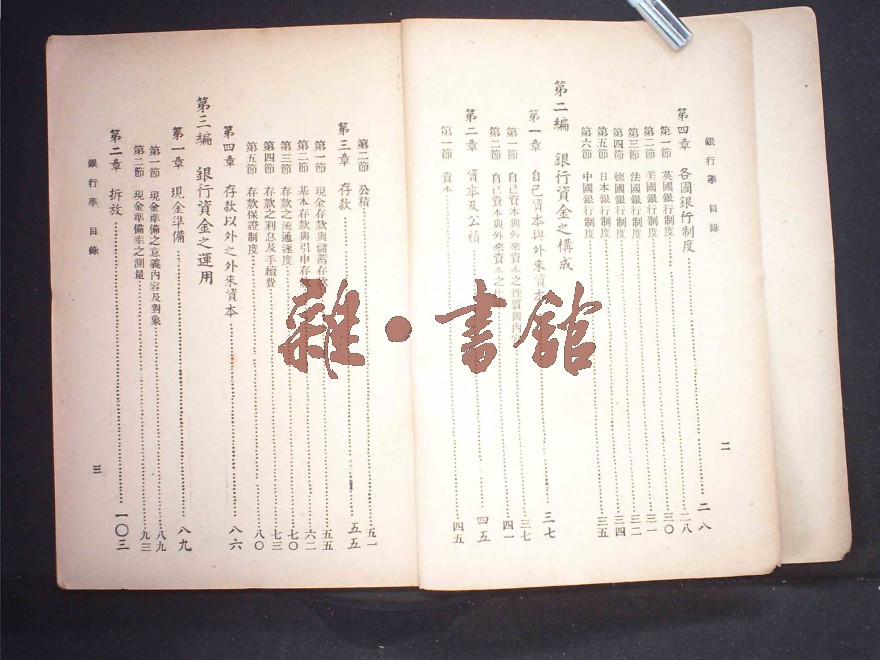 銀行學 目錄
二
第四章 各國銀行制度 二八
第一節 英國銀行制度 二八
第二節 美國銀行制度 三〇
第三節 法國銀行制度 三一
第四節 德國銀行制度 三二
第五節 日本銀行制度 三四
第六節 中國銀行制度 三五
第二編 銀行資金之構成
第一章 自己資本與外來資本 三七
第一節 自己資本與外來資本之性質與內 三七
第二節 自己資本與外來資本之 四一
第二章 資本及公積 四五
第一節 資本 四五
第二節 公積 五一
第三章 存款 五五
第一節 現金存款與儲蓄存款 五五
第二節 基本存款與引申存款 六二
第三節 存款之流通速度 七〇
第四節 存款之利息及手續費 七三
第五節 存款保證制度 八〇
第四章 存款以外之外來資本 八六
第三編 銀行資金之運用
第一章 現金準備 八九
第一節 現金準備之意義內容及對象 八九
第二節 現金準備率之測量 九三
第二章 拆放 一〇三
銀行學 目錄
三
雜·書館